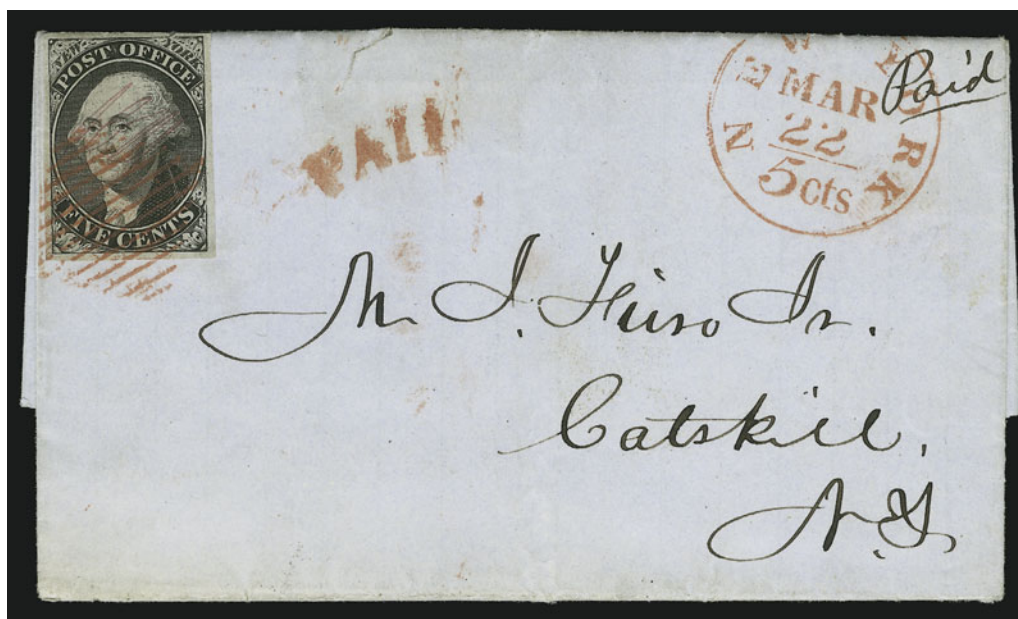 NEW YORK
POST OFFICE
FIVE CENTS
PAID
NEW YORK
MAR
22
5 cts
Paid
M. I. Jr.
Catskill,
N.Y.